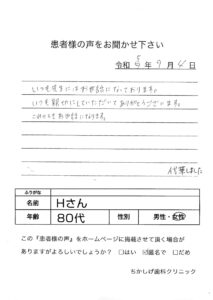 患者様の声をお聞かせ下さい
令和5年9月4日
いつも先生にはお世話になっております。
いつも親切にしていただいてありがとうございます。
これからもお世話になります。
代筆しました
ふりがな
名前 Hさん
年齢 80代 性別 男性・女性
この『患者様の声』をホームページに掲載させて頂く場合が
ありますがよろしいでしょうか？ □はい ☑匿名で □だめ
ちかしげ歯科クリニック